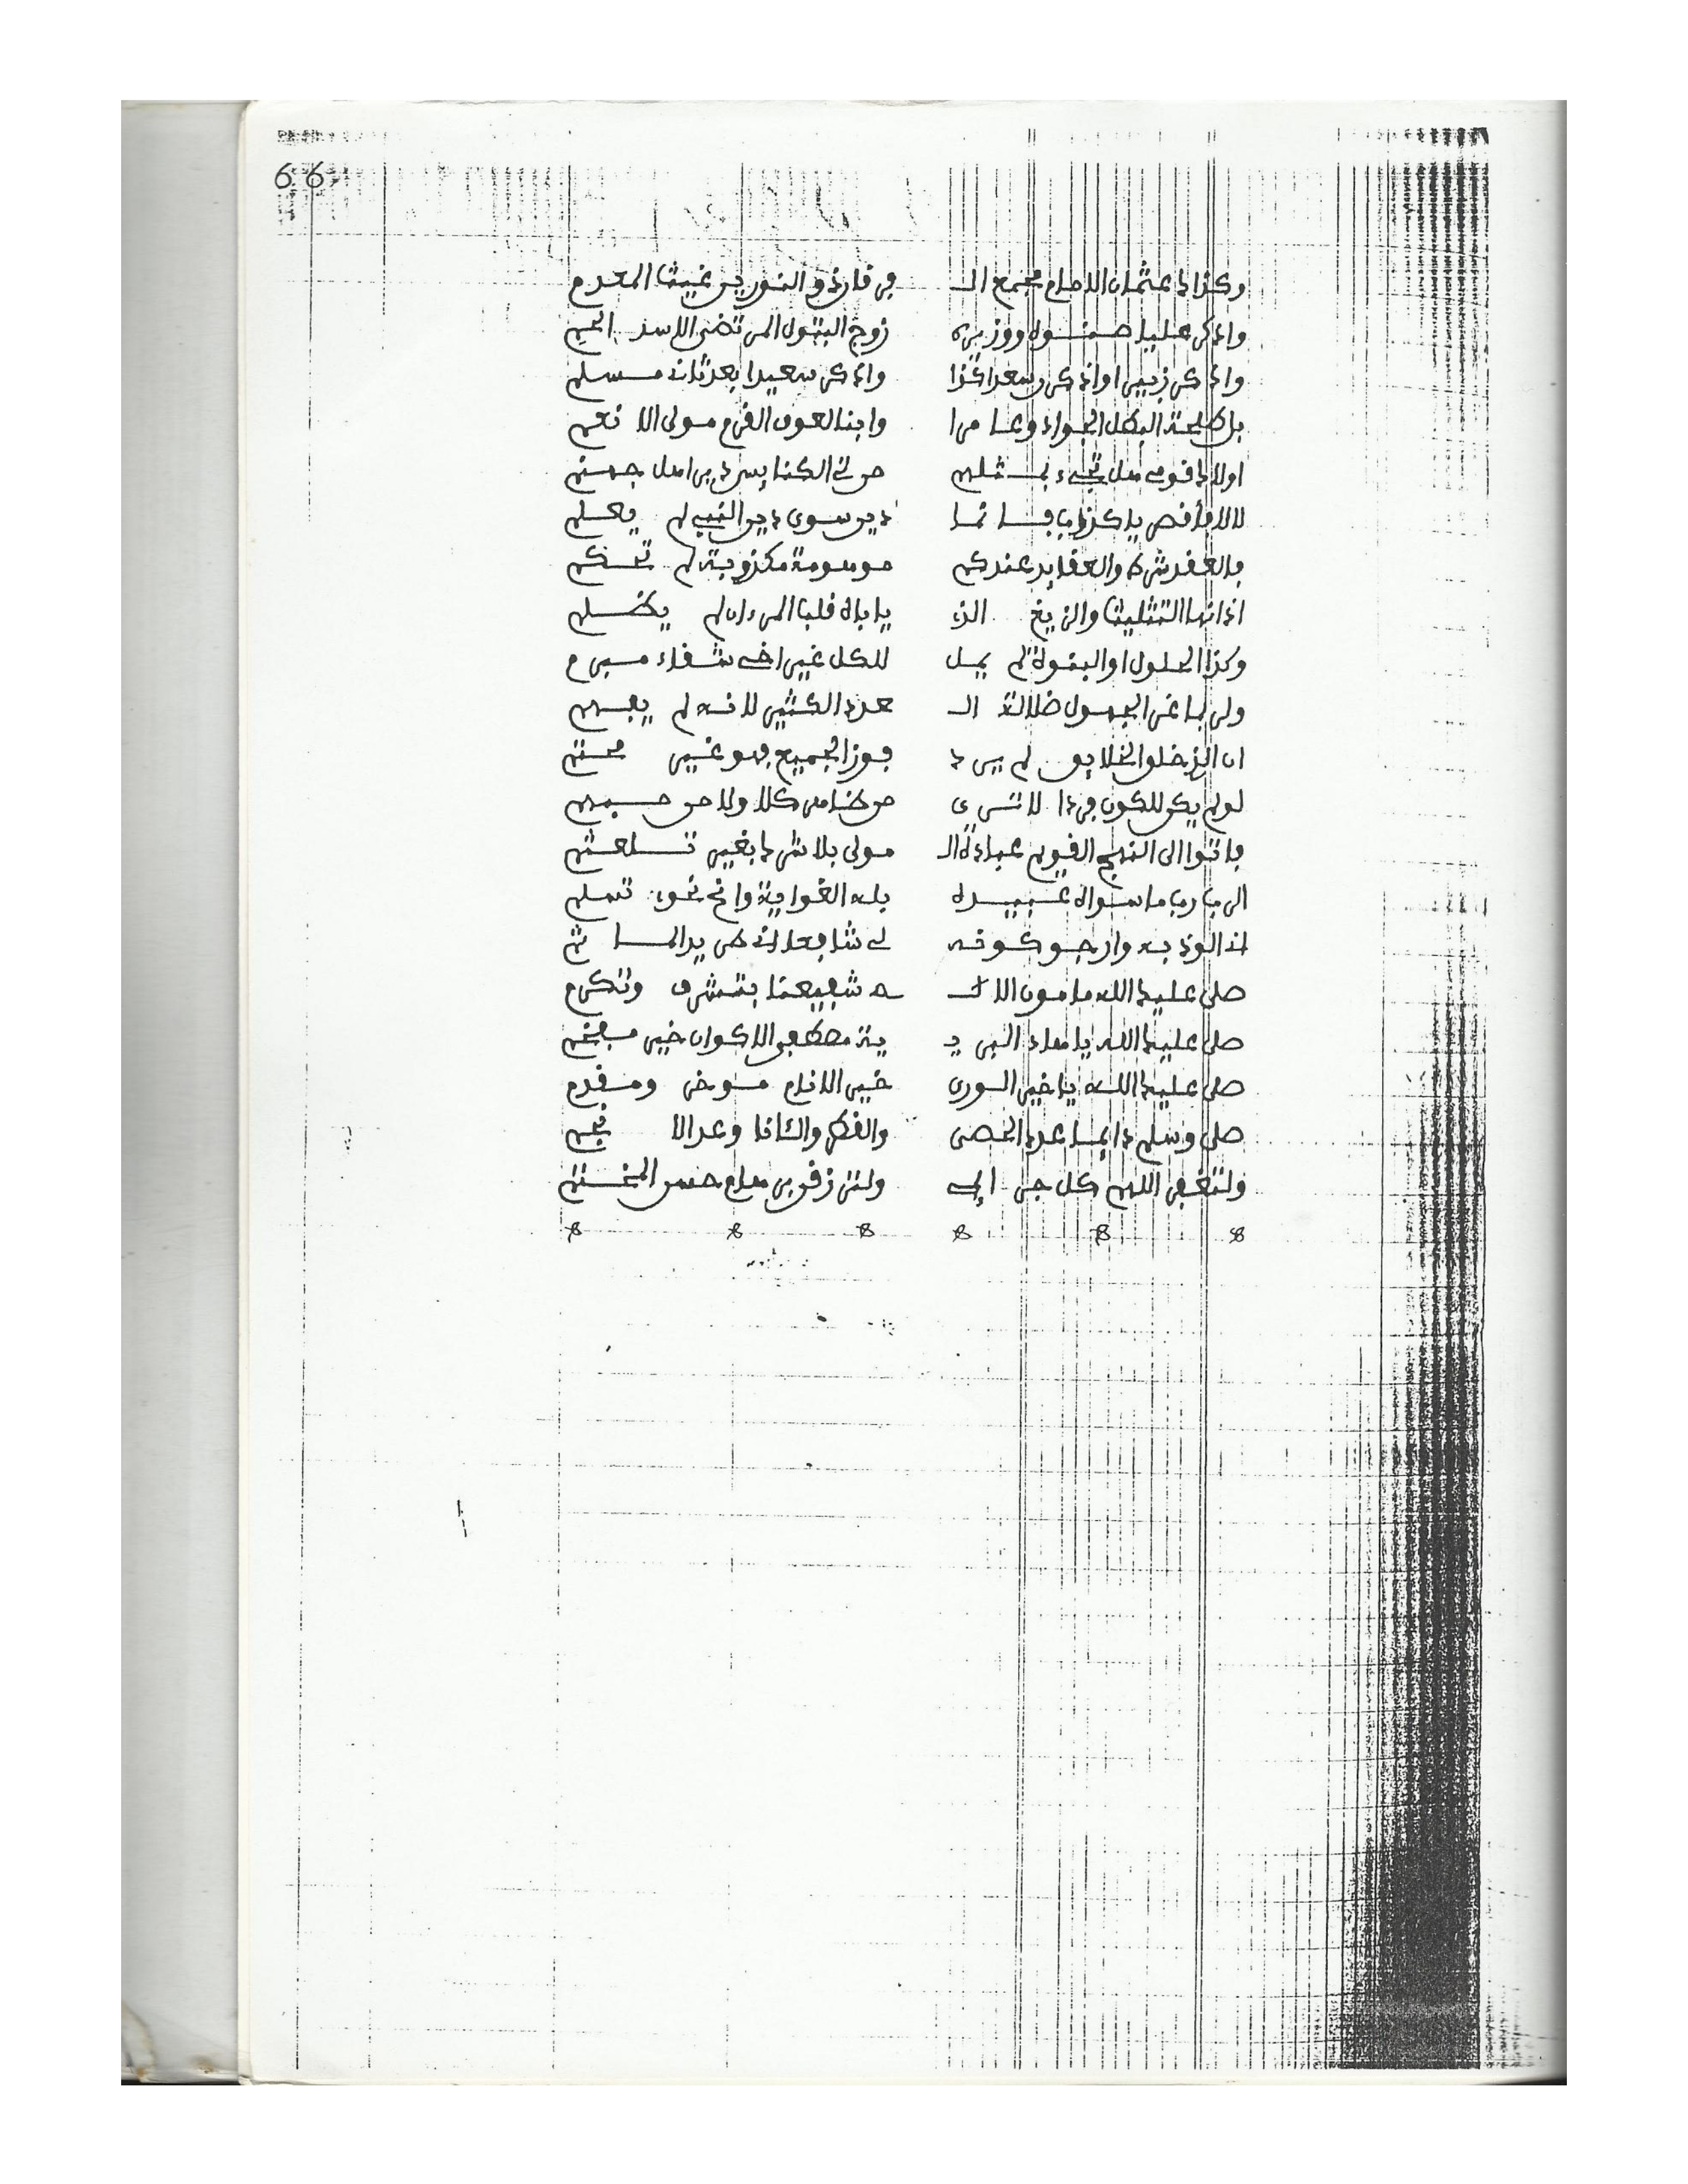 66
وكذاك عثمان الامام مجمع الـ فرقان ذو النورين غيث المعدم
واذكر عليا صنوه ووزيره زوج البتول المرتضى الاسد الحم
واذكر زبيرا واذكر سعدا كذا واذكر سعيدا بعد ثالث مسلم
بل طلحة البطل الجواد وعامرا وابن العوف القرم مولى الانعم
اولاك قومي هل تجيء بمثلهم من في الكنايس دير اهل جهنم
لا لا فأقصر يا كذاب فانما دين سوى دين النبي لم يعلم
فالعقد شرك والعقايد عندكم موهومة مكذوبة لم تحكم
اذ انها التثليث والزيغ الذي ياباه قلب المرء ان لم يظلم
وكذا الحلول او البنوة لم يمل للكل غير اخي شقاء مبرم
ولربما غر الجهول ضلالة الـ عدد الكثير لانه لم يفهم
ان الذ خلق الخلايق لم يرد فوز الجميع فهو غير محتم
لو لم يكن للكون فردا لا ترى من طاهر كلا ولا من مبهم
فاتوا الى النهج القويم عبادة الـ مولى بلا شرك بغير تلعثم
الرب رب ما سواه عبيده بله الغواية وانح نحوي تسلم
اذ الوذ به وارجو كونه لي شافعا اذ طهر يد الماثم
صلى عليك الله مامون الالـ ـه شفيعنا بتشرف وتكرم
صلى عليك الله يا هاد البر يـ ية مصطفى الاكوان خير مفخم
صلى عليك الله يا خير الورى خير الانام موخر ومقدم
صلى وسلم دايما عدد الحصى والقطر والثانا وعد الانجم
ولتغفر اللهم كل جرايمي ولترزقني هدي حسن المختتم